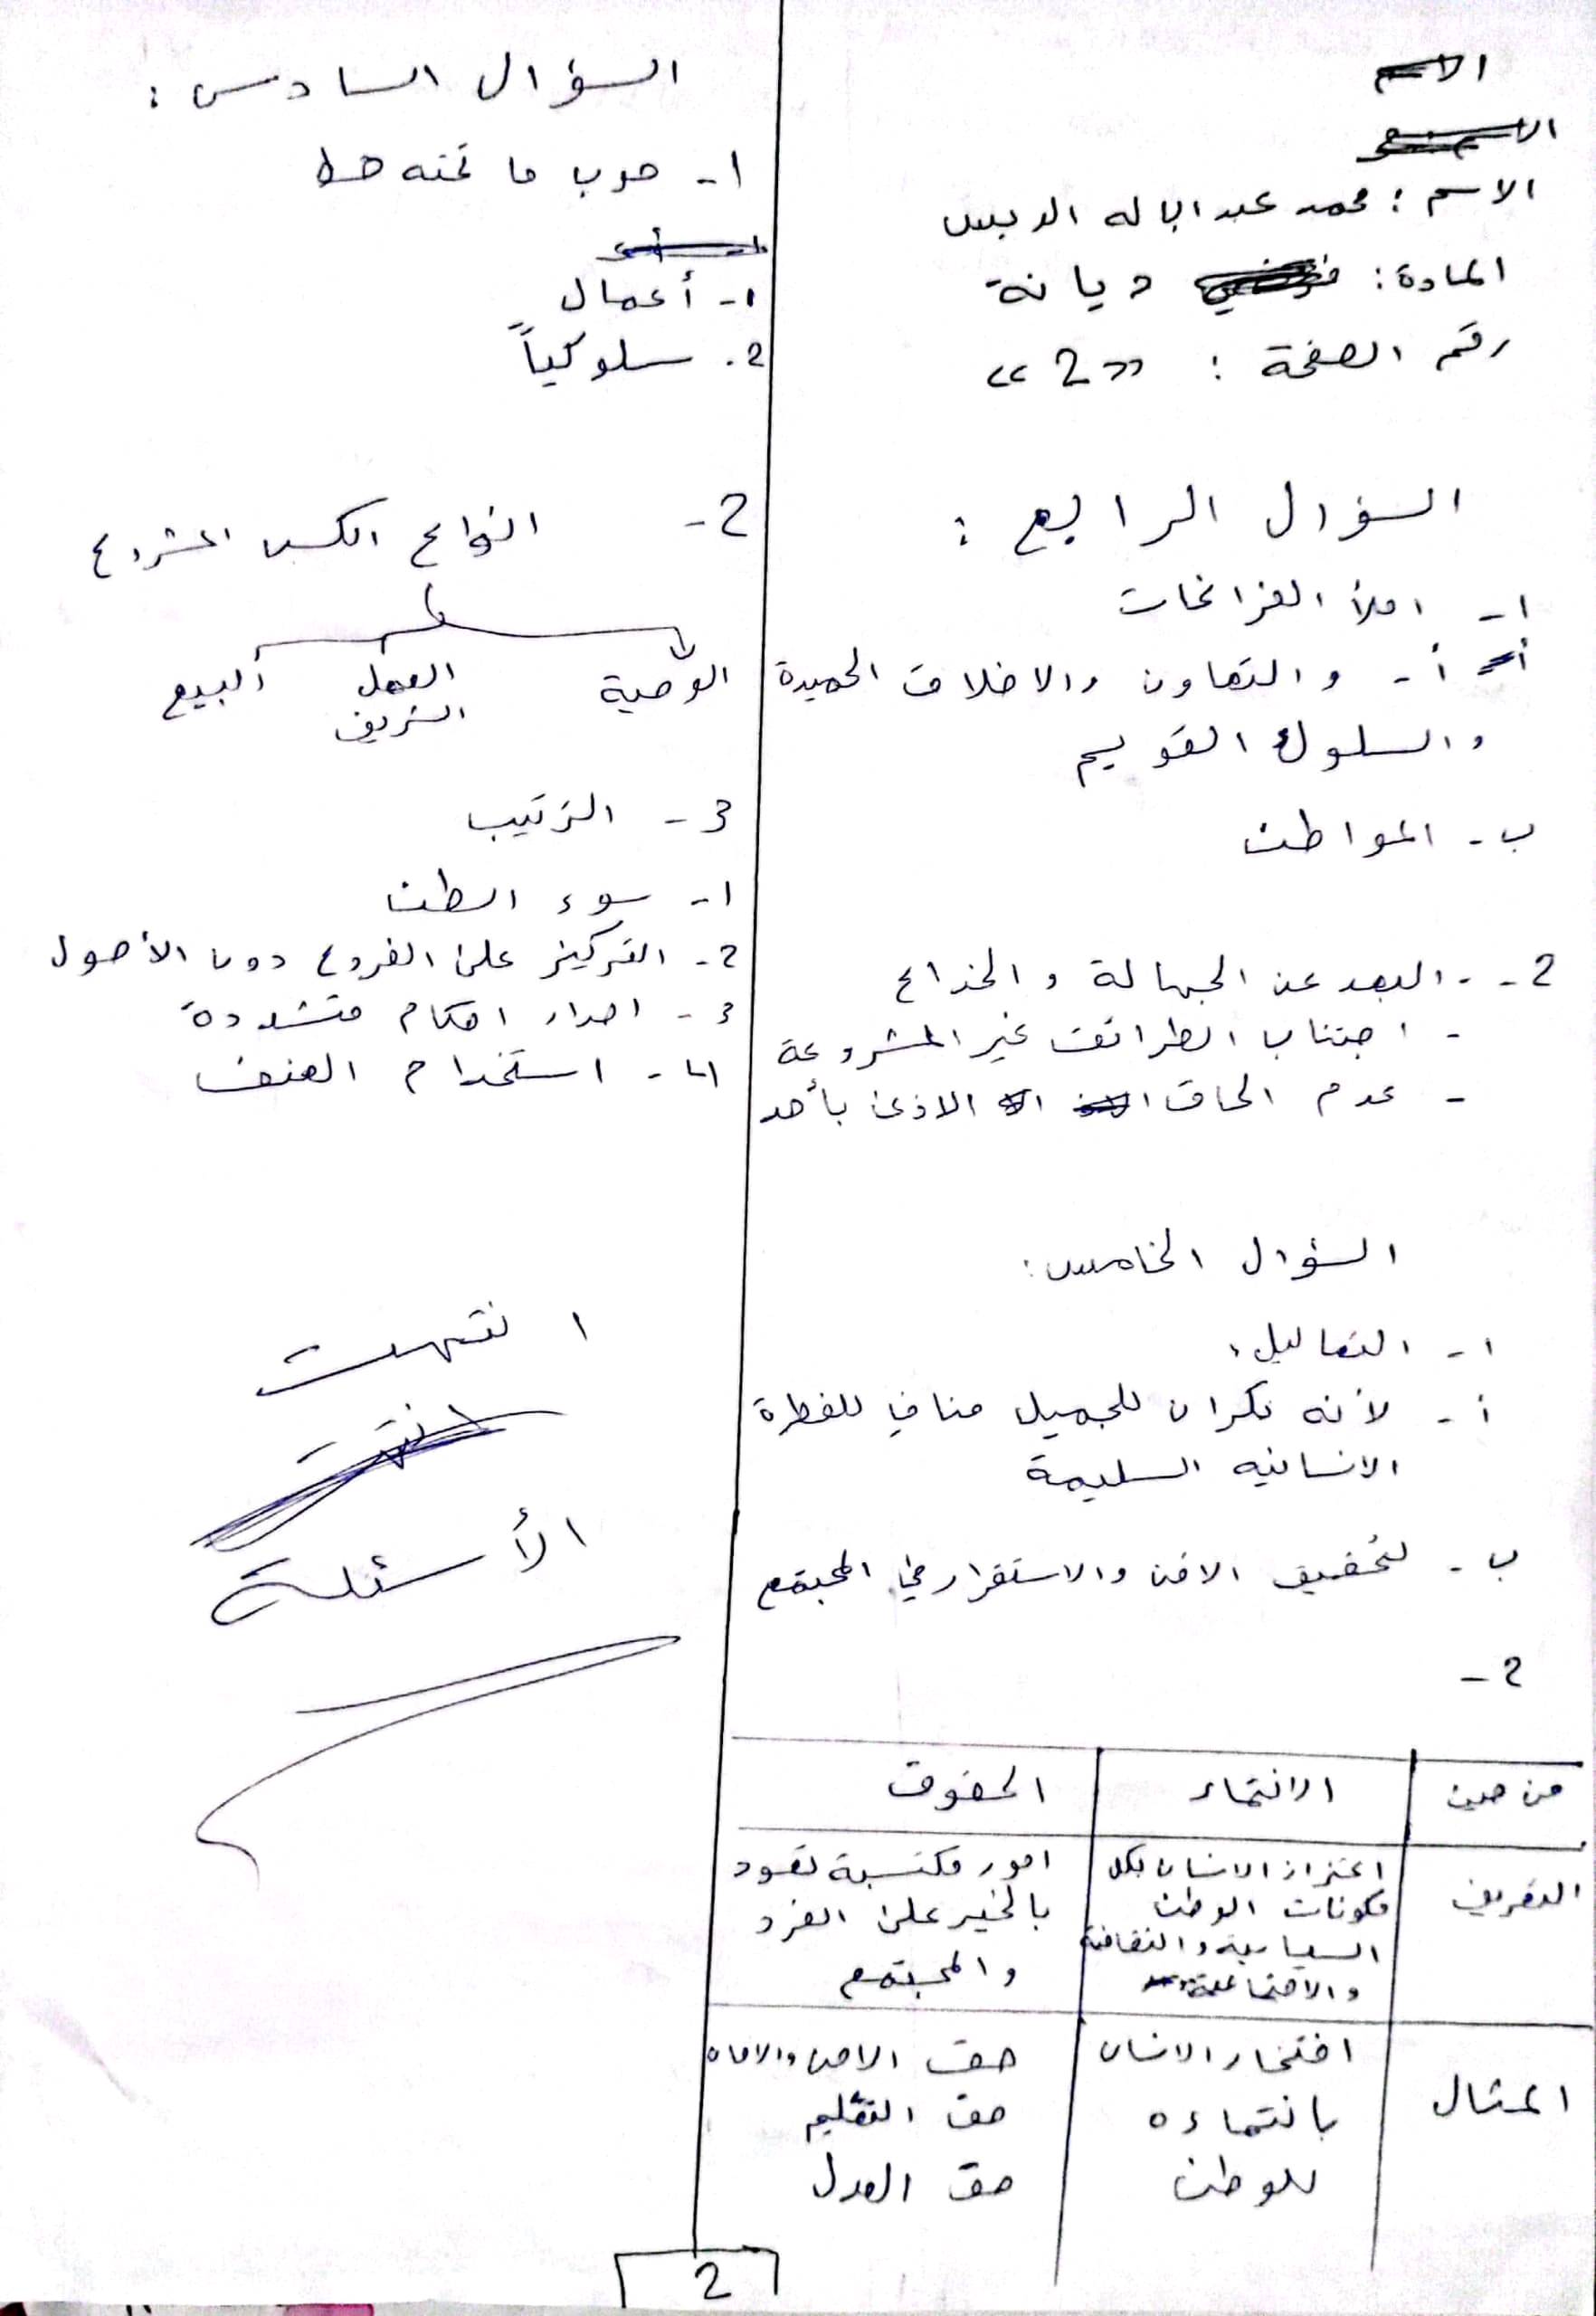 الاسم : محمد عبد الاله الدبس
المادة : ديانة
رقم الصفحة : « 2 »
السؤال الرابع :
1- املأ الفراغات
أ - والتعاون والاخلاق الحميدة
والسلوك القويم
ب - المواطن
2 - - البعد عن الجهالة والخداع
- اجتناب الطرائق غير المشروعة
- عدم الحاق الاذى بأحد
السؤال الخامس :
1 - التعاليل :
أ - لأنه نكران للجميل منافي للفطرة
الانسانيه السليمة
ب - لتحقيق الامن والاستقرار في المجتمع
2 -
من حيث الانتماء الحقوق
التعريف
اعتزاز الانسان بكل
مكونات الوطن
السياسية والثقافية
والاجتماعية
امور مكتسبة تعود
بالخير على الفرد
والمجتمع
المثال
افتخار الانسان
بانتماءه
للوطن
حق الامن والامان
حق التعليم
حق العدل
السؤال السادس :
1- صوب ما تحته خط
1- أعمال
2. سلوكياً
2- انواع الكسب المشروع
الوصية العمل البيع
الشريف
3 - الترتيب
1- سوء الظن
2- التركيز على الفروع دون الأصول
3 - اصدار احكام متشددة
4- استخدام العنف
انتهت
الأسئلة
2